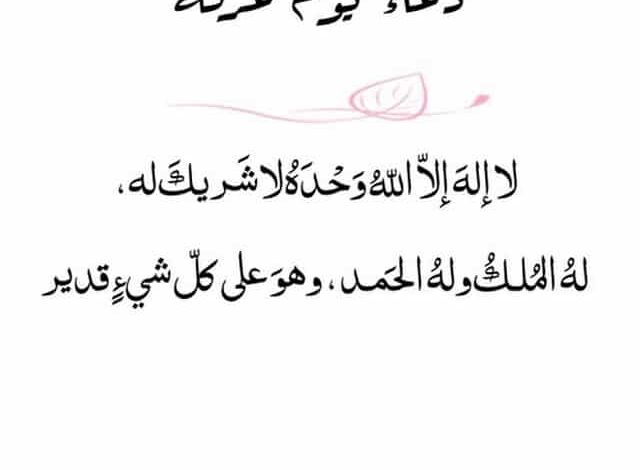 دعاء يوم عرفة
لا إلهَ إلاّ اللهُ وَحْدَهُ لا شَريكَ له،
لهُ المُلكُ ولهُ الحَمد، وهوَ على كلّ شيءٍ قدير